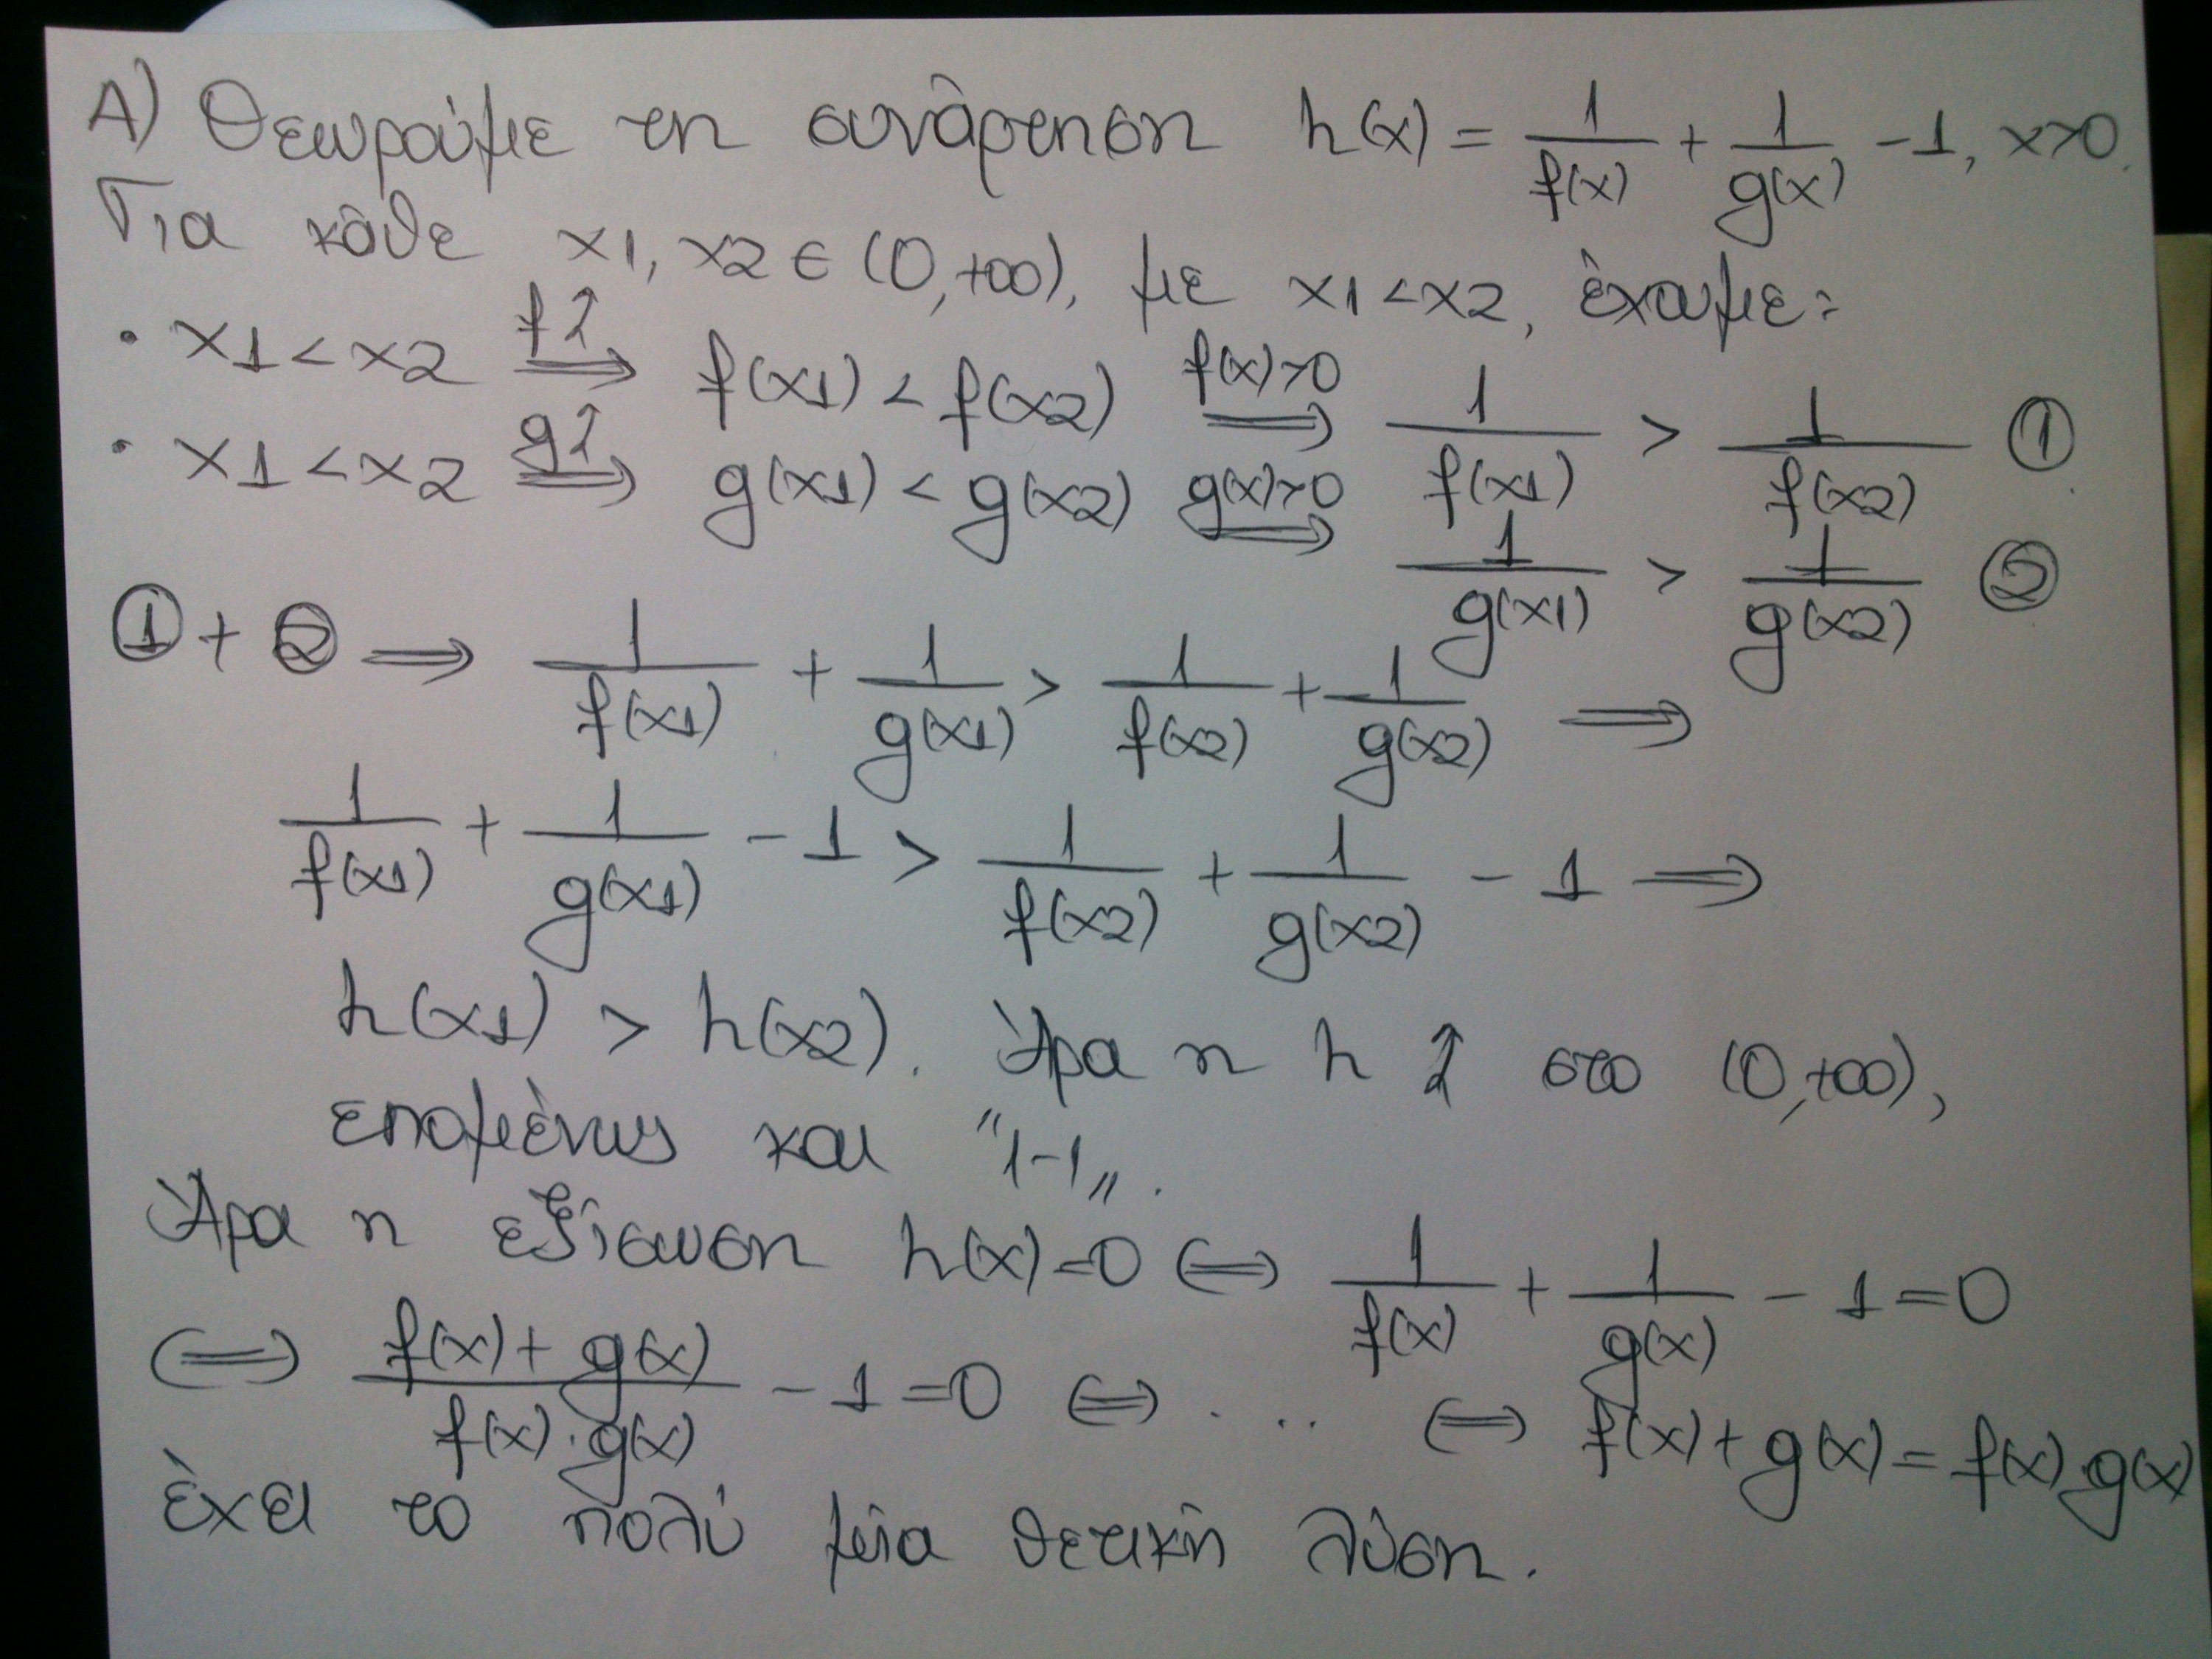 Α) Θεωρούμε τη συνάρτηση h(x) = 1/f(x) + 1/g(x) - 1, x>0.
Για κάθε x1, x2 ∈ (0,+∞), με x1<x2, έχουμε:
• x1<x2 f↑⟹ f(x1) < f(x2) f(x)>0⟹ 1/f(x1) > 1/f(x2) ①
• x1<x2 g↑⟹ g(x1) < g(x2) g(x)>0⟹ 1/g(x1) > 1/g(x2) ②
①+② ⟹ 1/f(x1) + 1/g(x1) > 1/f(x2) + 1/g(x2) ⟹
1/f(x1) + 1/g(x1) - 1 > 1/f(x2) + 1/g(x2) - 1 ⟹
h(x1) > h(x2). Άρα η h ↑ στο (0,+∞),
επομένως και "1-1".
Άρα η εξίσωση h(x)=0 ⟺ 1/f(x) + 1/g(x) - 1=0
⟺ f(x)+g(x)/f(x)·g(x) - 1=0 ⟺ ... ⟺ f(x)+g(x)=f(x)·g(x)
έχει το πολύ μία θετική λύση.